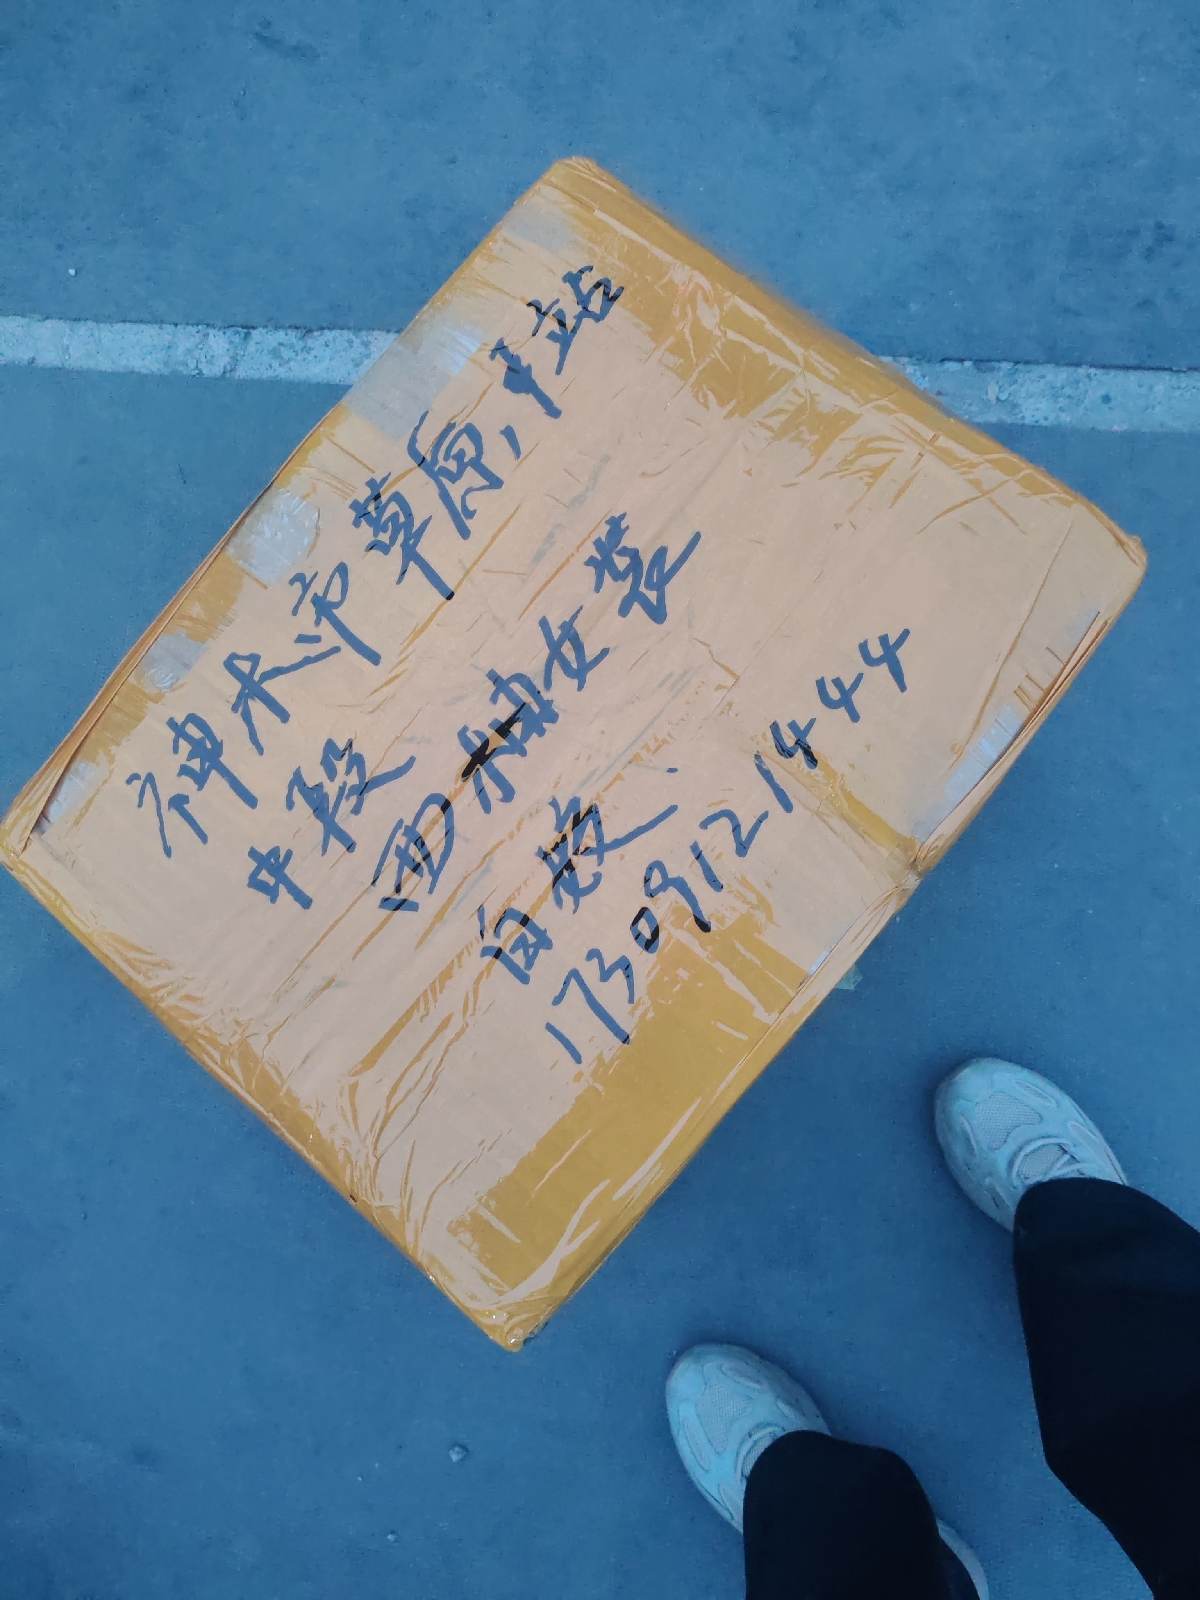 神木市草原,中站
中段
西柚女装
白敏
17309121444